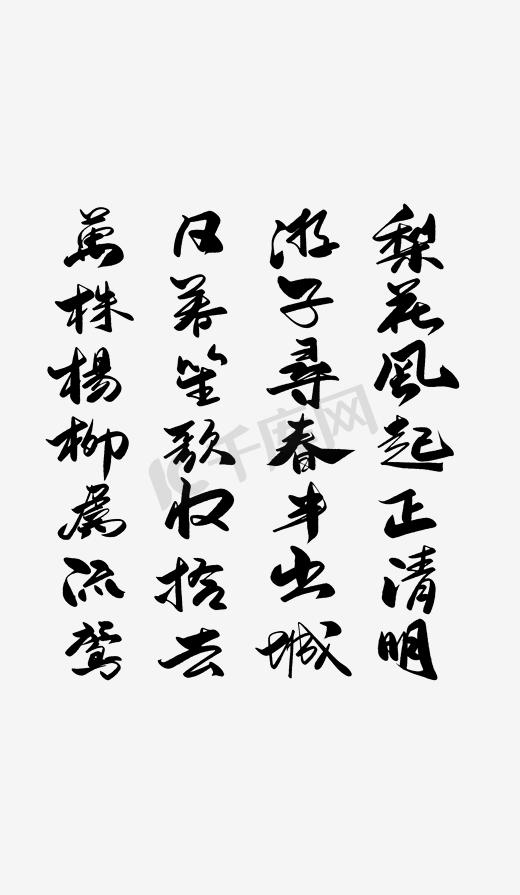 梨花風起正清明
游子尋春半出城
日暮笙歌收拾去
萬株楊柳属流鶯
千库网